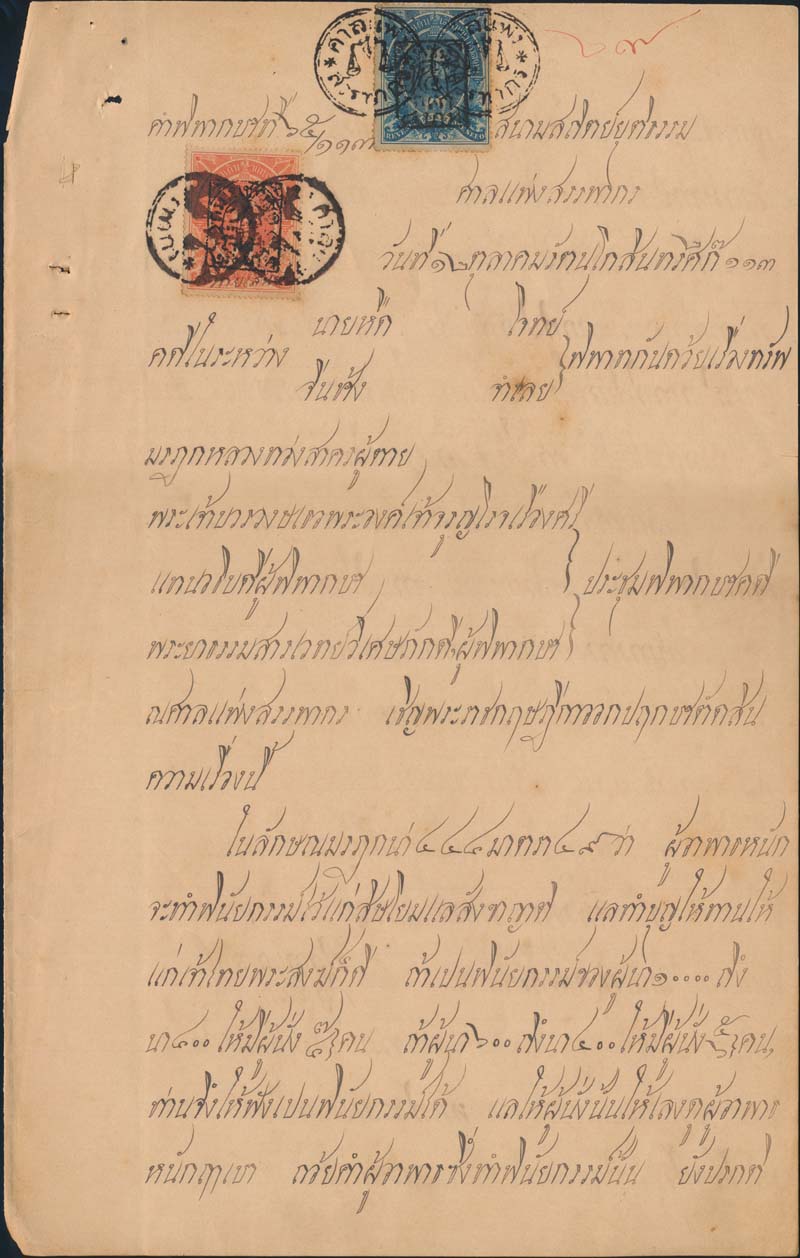 ๖๙
คำพิพากษาที่ ๖๕/๑๑๓ สนามสถิตย์ยุติธรรม
ศาลแพ่งสรรพากร
วันที่ ๑๒ ตุลาคม รัตนโกสินทรศักดิ๊ ๑๑๓
คดีในระหว่าง นายหีด โจทย์ จีน จำเลย พิพาทกันด้วยเรื่องทรัพ
มรฎกหลวงท่วงสาครผู้ตาย
พระเจ้าบวรวงษเธอพระองค์เจ้าจรูญโรจเรืองศรี
แทนอธิบดีผู้พิพากษา ประชุมพิพากษาคดี
พระยาธรรมสารเวทย์วิเศษภักดีผู้พิพากษา
ณศาลแพ่งสรรพากร เชิญพระราชกฤษฎีกาออกปฤกษาตัดสิน
ความเรื่องนี้
ในลักษณมรฎกน่า ๔๔๔ มาตรา ๔๙ ว่า ผู้อาพาธหนัก
จะทำพินัยกรรม์ไว้แก่สัปโยมแลสังฆญาติ แลทำบุญให้ทานให้
แก่เจ้าไทยพระสงฆ์ก็ดี ถ้าเปนพินัยกรรม์ของผู้นา ๑๐๐๐๐ ถึง
นา ๘๐๐ ให้มีผู้นั่ง คน ถ้าผู้นา ๖๐๐ ถึงนา ๔๐๐ ให้มีผู้นั่ง คน
ท่านจึงให้ฟังเปนพินัยกรรม์ได้ แลให้ผู้นั่งนั้นให้เลงดูผู้อาพาธ
หนักฤาเบา ถ้อยคำผู้อาพาธซึ่งทำพินัยกรรม์นั้น ยังปรกติ